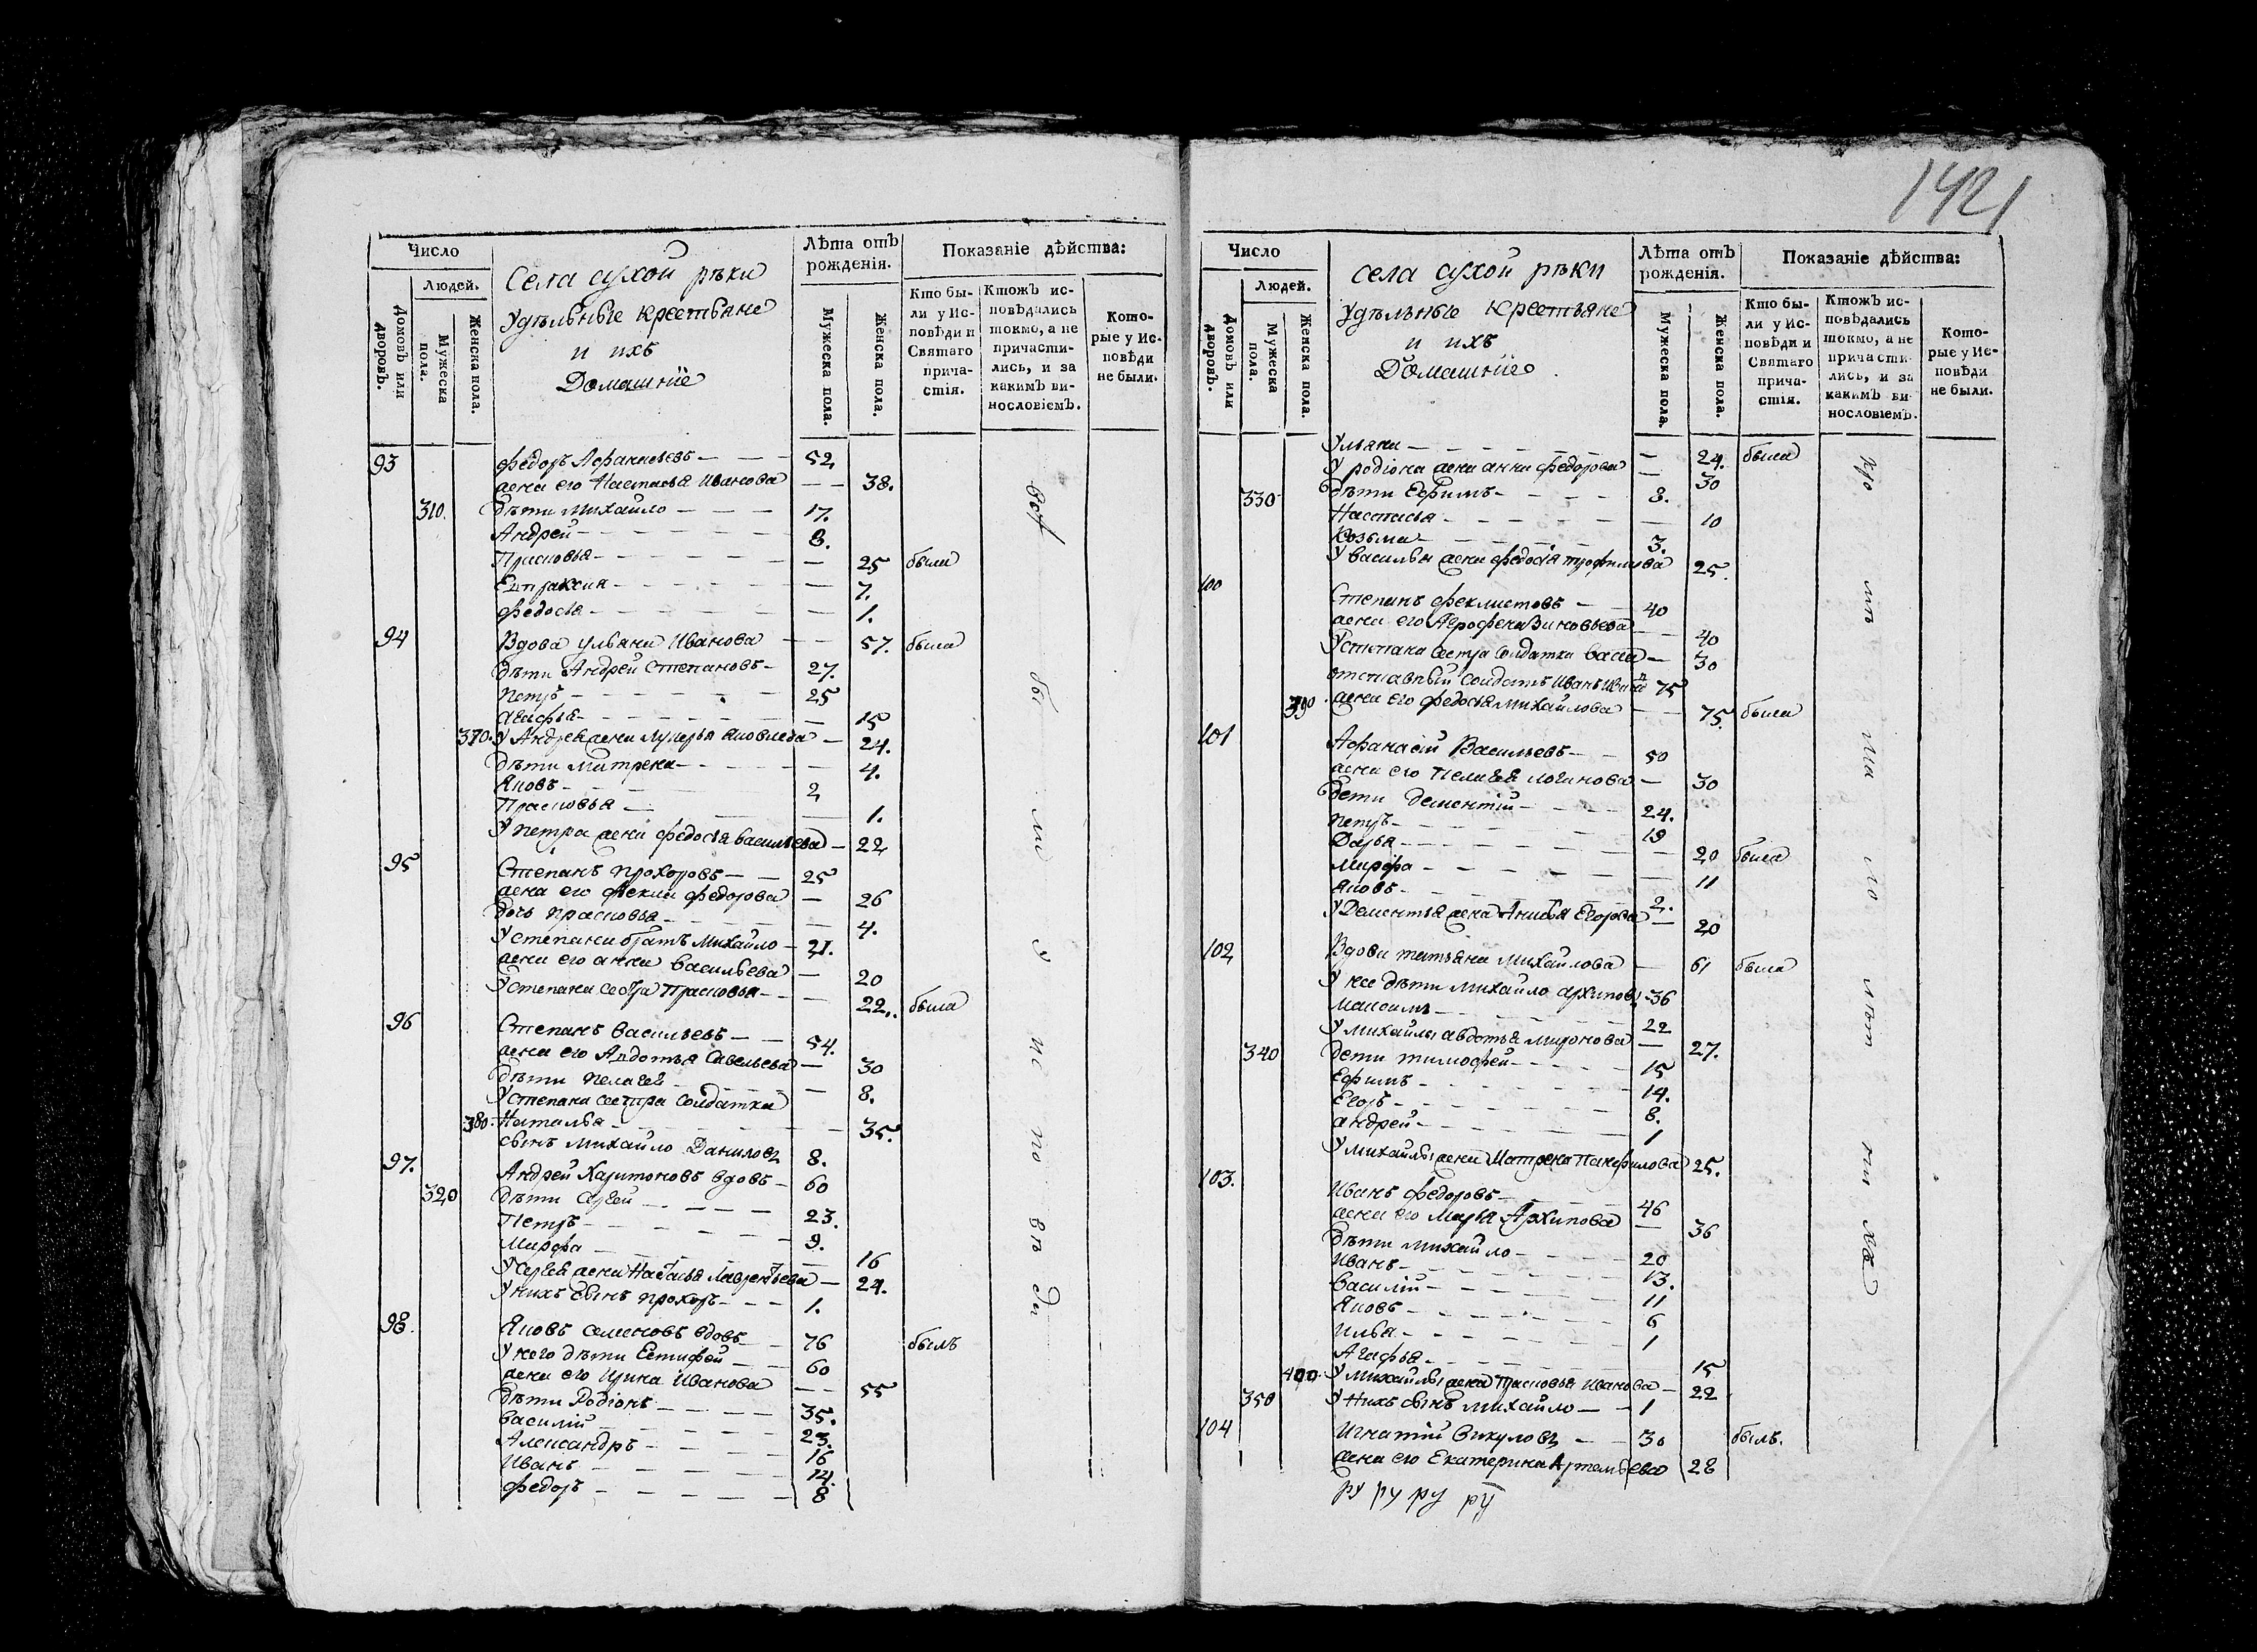 1421
Число
Людей.
Домовъ или дворовъ.
Мужеска пола.
Женска пола.
Села сухой рѣки
Удѣльные крестьяне
и ихъ
Домашние
Лѣта отъ рожденія.
Мужеска пола.
Женска пола.
Показаніе дѣйства:
Кто были у Исповѣди и Святаго причастія.
Ктожъ исповѣдались токмо, а не причастились, и за какимъ винословіемъ.
Которые у Исповѣди не были.
93 федоръ Афанасьевъ 52
жена его Настасья Иванова 38.
310. дѣти Михайло 17.
Андрей 8.
Прасковья 25 были
Евпраксия 7.
федосья 1.
94 Вдова ульяна Иванова 57. была
дѣти Андрей Степановъ 27.
петръ 25
агафья 15
370. У Андрея жена Лукерья яковлева 24.
дѣти матрена 4.
Яковъ 2
Прасковья 1.
У петра жена федосья васильева 22
95 Степанъ прохоровъ 25
жена его фекла федорова 26
дочь прасковья 4.
У степана братъ Михайло 21.
жена его анна васильева 20
У степана сестра Прасковья 22. была
96 Степанъ васильевъ 54.
жена его Авдотья Савельева 30
дѣти пелагея 8.
У степана сестра солдатка
380. Наталья 35.
сынъ михайло Даниловъ 8.
97. Андрей Харитоновъ вдовъ 60
320 дѣти Сергей 23.
Петръ 9.
Марфа 16
У Сергея жена Настасья Лаврентьева 24.
У нихъ сынъ прохоръ 1.
98. Яковъ семеновъ вдовъ 76 былъ
У него дѣти Естифей 60
жена его Ирина Иванова 55
дѣти Родионъ 35.
василий 23.
Александръ 16
Иванъ 14.
федоръ 8
всѣ бы ли у ис по вѣ ди
Число
Людей.
Домовъ или дворовъ.
Мужеска пола.
Женска пола.
села сухой рѣки
удѣльные крестьяне
и ихъ
Домашние
Лѣта отъ рожденія.
Мужеска пола.
Женска пола.
Показаніе дѣйства:
Кто были у Исповѣди и Святаго причастія.
Ктожъ исповѣдались токмо, а не причастились, и за какимъ винословіемъ.
Которые у Исповѣди не были.
Ульяна 24. была
У родиона жена анна федорова 30
330 дѣти Ефимъ 8.
Настасья 10
Козьма 3.
У василья жена федосья трофимова 25.
100 Степанъ феклистовъ 40
жена его Зиновьева 40
У степана сестра солдатка 30
отставный солдатъ Иванъ 75
390 жена его федосья михайлова 75. была
101 Афанасий Васильевъ 50
жена его пелагея логинова 30
дети дементий 24.
петръ 19
Дарья 20 была
марфа 11
яковъ 2.
У Дементья жена Анисья Егорова 20
102 Вдова татьяна михайлова 61 была
У нее дѣти михайло архиповъ 36
максимъ 22
У михайлы авдотья миронова 27.
340 дети тимофей 15
Ефимъ 14.
Егоръ 8.
андрей 1
У михайлы жена Матрена Панфилова 25.
103. Иванъ федоровъ 46
жена его Марья Архипова 36
дѣти михайло 20
Иванъ 13.
василий 11
Яковъ 6
Илья 1
Агафья 15
400 У михайлы жена прасковья Иванова 22
350 У нихъ сынъ михайло 1
104 Игнатий викуловъ 30 былъ.
жена его Екатерина Артемьева 28
ру ру ру ру